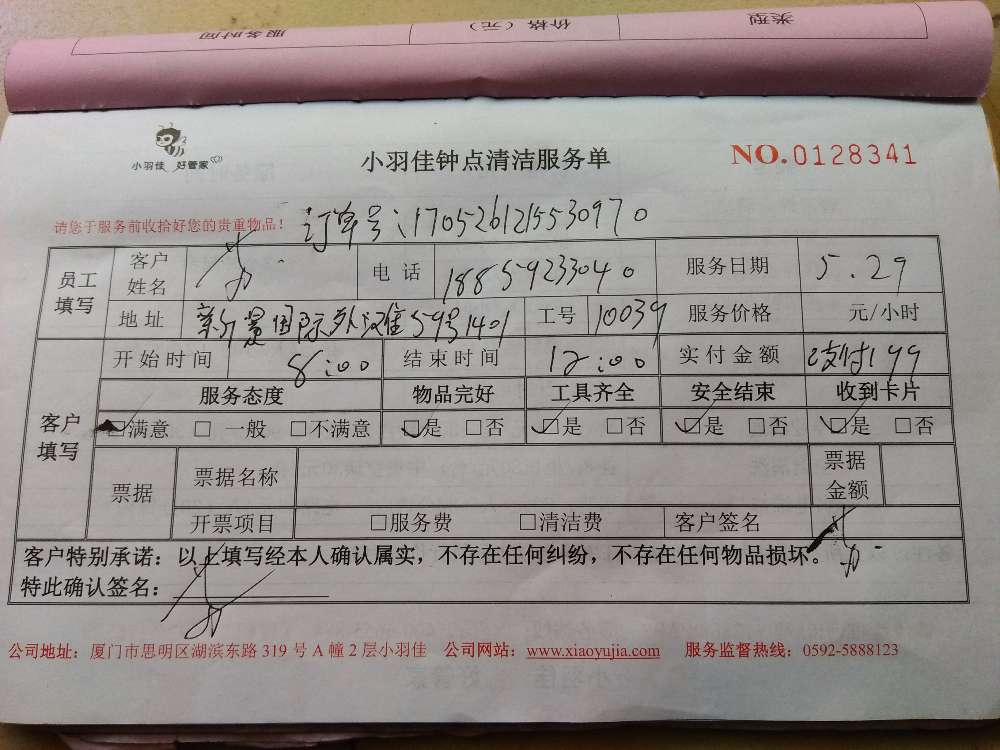 服务时间 价格（元） 类型
小羽佳 好管家
小羽佳钟点清洁服务单
NO.0128341
请您于服务前收拾好您的贵重物品！
订单号：1705261215530970
员工填写 客户姓名 电话 18859233040 服务日期 5.29
地址 新景国际外滩59号1401 工号 10039 服务价格 元/小时
客户填写 开始时间 8:00 结束时间 12:00 实付金额 支付199
服务态度 物品完好 工具齐全 安全结束 收到卡片
☑满意 □ 一般 □不满意 ☑是 □否 ☑是 □否 ☑是 □否 ☑是 □否
票据 票据名称 票据金额
开票项目 □服务费 □清洁费 客户签名
客户特别承诺：以上填写经本人确认属实，不存在任何纠纷，不存在任何物品损坏。
特此确认签名：
公司地址：厦门市思明区湖滨东路 319 号 A 幢 2 层小羽佳 公司网站：www.xiaoyujia.com 服务监督热线：0592-5888123